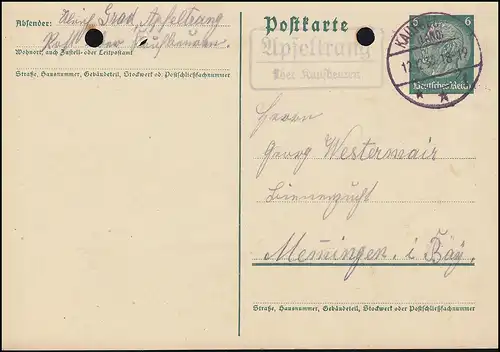 Absender: Ulrich Grad, Apfeltrang
Post über Kaufbeuren.
Wohnort, auch Zustell- oder Leitpostamt
Straße, Hausnummer, Gebäudeteil, Stockwerk od. Postschließfachnummer
Postkarte
Apfeltrang
über Kaufbeuren
6 6
Deutsches Reich
Herrn
Georg Westermair
Memmingen i Bay.
Straße, Hausnummer, Gebäudeteil, Stockwerk oder Postschließfachnummer